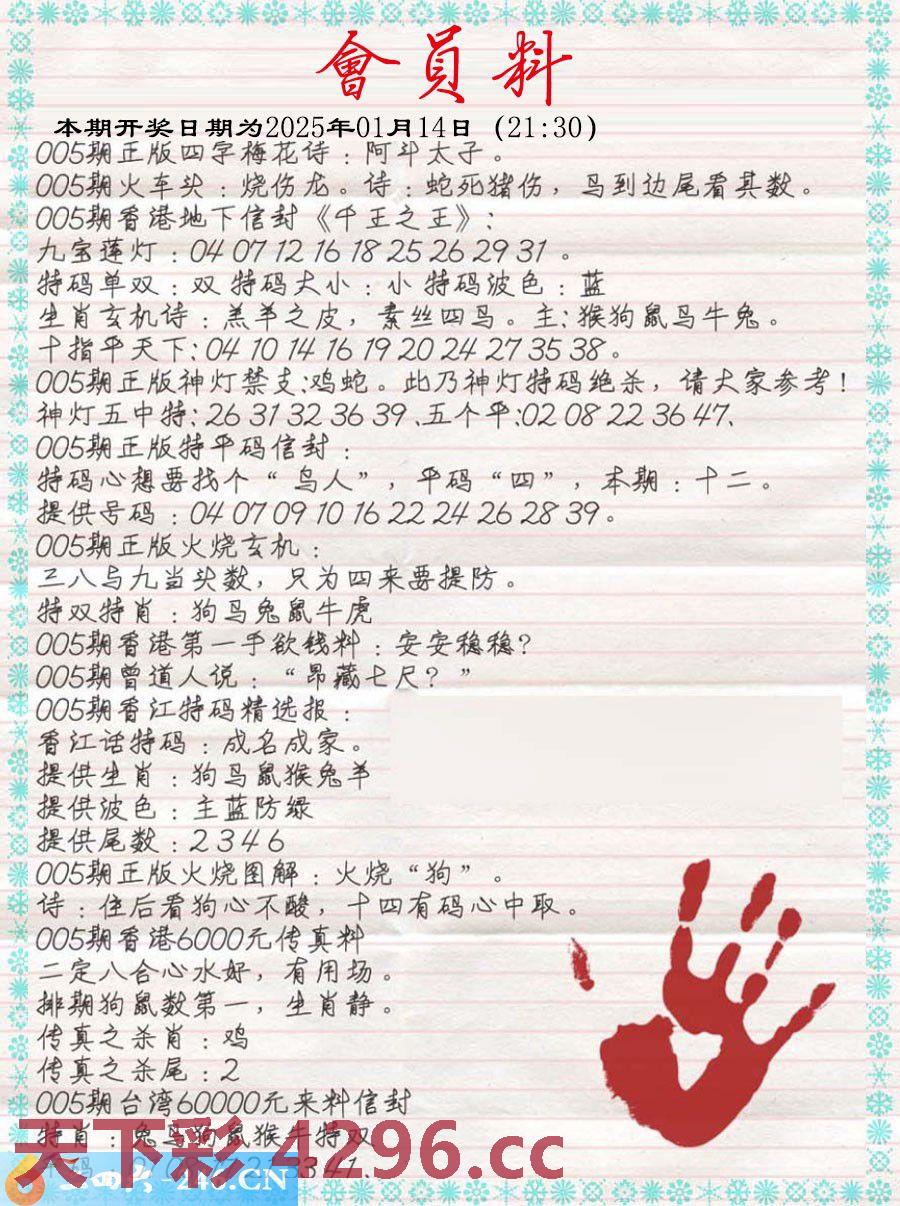 會員料
本期开奖日期为2025年01月14日（21:30）
005期正版四字梅花诗：阿斗太子。
005期火车头：烧伤龙。诗：蛇死猪伤，鸟到边尾看其数。
005期香港地下信封《千王之王》：
九宝莲灯：04 07 12 16 18 25 26 29 31 。
特码单双：双 特码大小：小 特码波色：蓝
生肖玄机诗：羔羊之皮，素丝四鸟。主：猴狗鼠鸟牛兔。
十指平天下：04 10 14 16 19 20 24 27 35 38 。
005期正版神灯禁支:鸡蛇。此乃神灯特码绝杀，请大家参考！
神灯五中特：26 31 32 36 39 .五个平:02 08 22 36 47.
005期正版特平码信封：
特码心想要找个“鸟人”，平码“四”，本期：十二。
提供号码：04 07 09 10 16 22 24 26 28 39。
005期正版火烧玄机：
三八与九当头数，只为四来要提防。
特双特肖：狗鸟兔鼠牛虎
005期香港第一手欲钱料：安安稳稳？
005期曾道人说：“昂藏七尺？”
005期香江特码精选报：
香江话特码：成名成家。
提供生肖：狗鸟鼠猴兔羊
提供波色：主蓝防绿
提供尾数：2 3 4 6
005期正版火烧图解：火烧“狗”。
诗：住后看狗心不酸，十四有码心中取。
005期香港6000元传真料
二定八合心水好，有用场。
排期狗鼠数第一，生肖静。
传真之杀肖：鸡
传真之杀尾：2
005期台湾60000元来料信封
特肖：兔鸟狗鼠猴牛特双
天下彩 4296.cc
246.CN